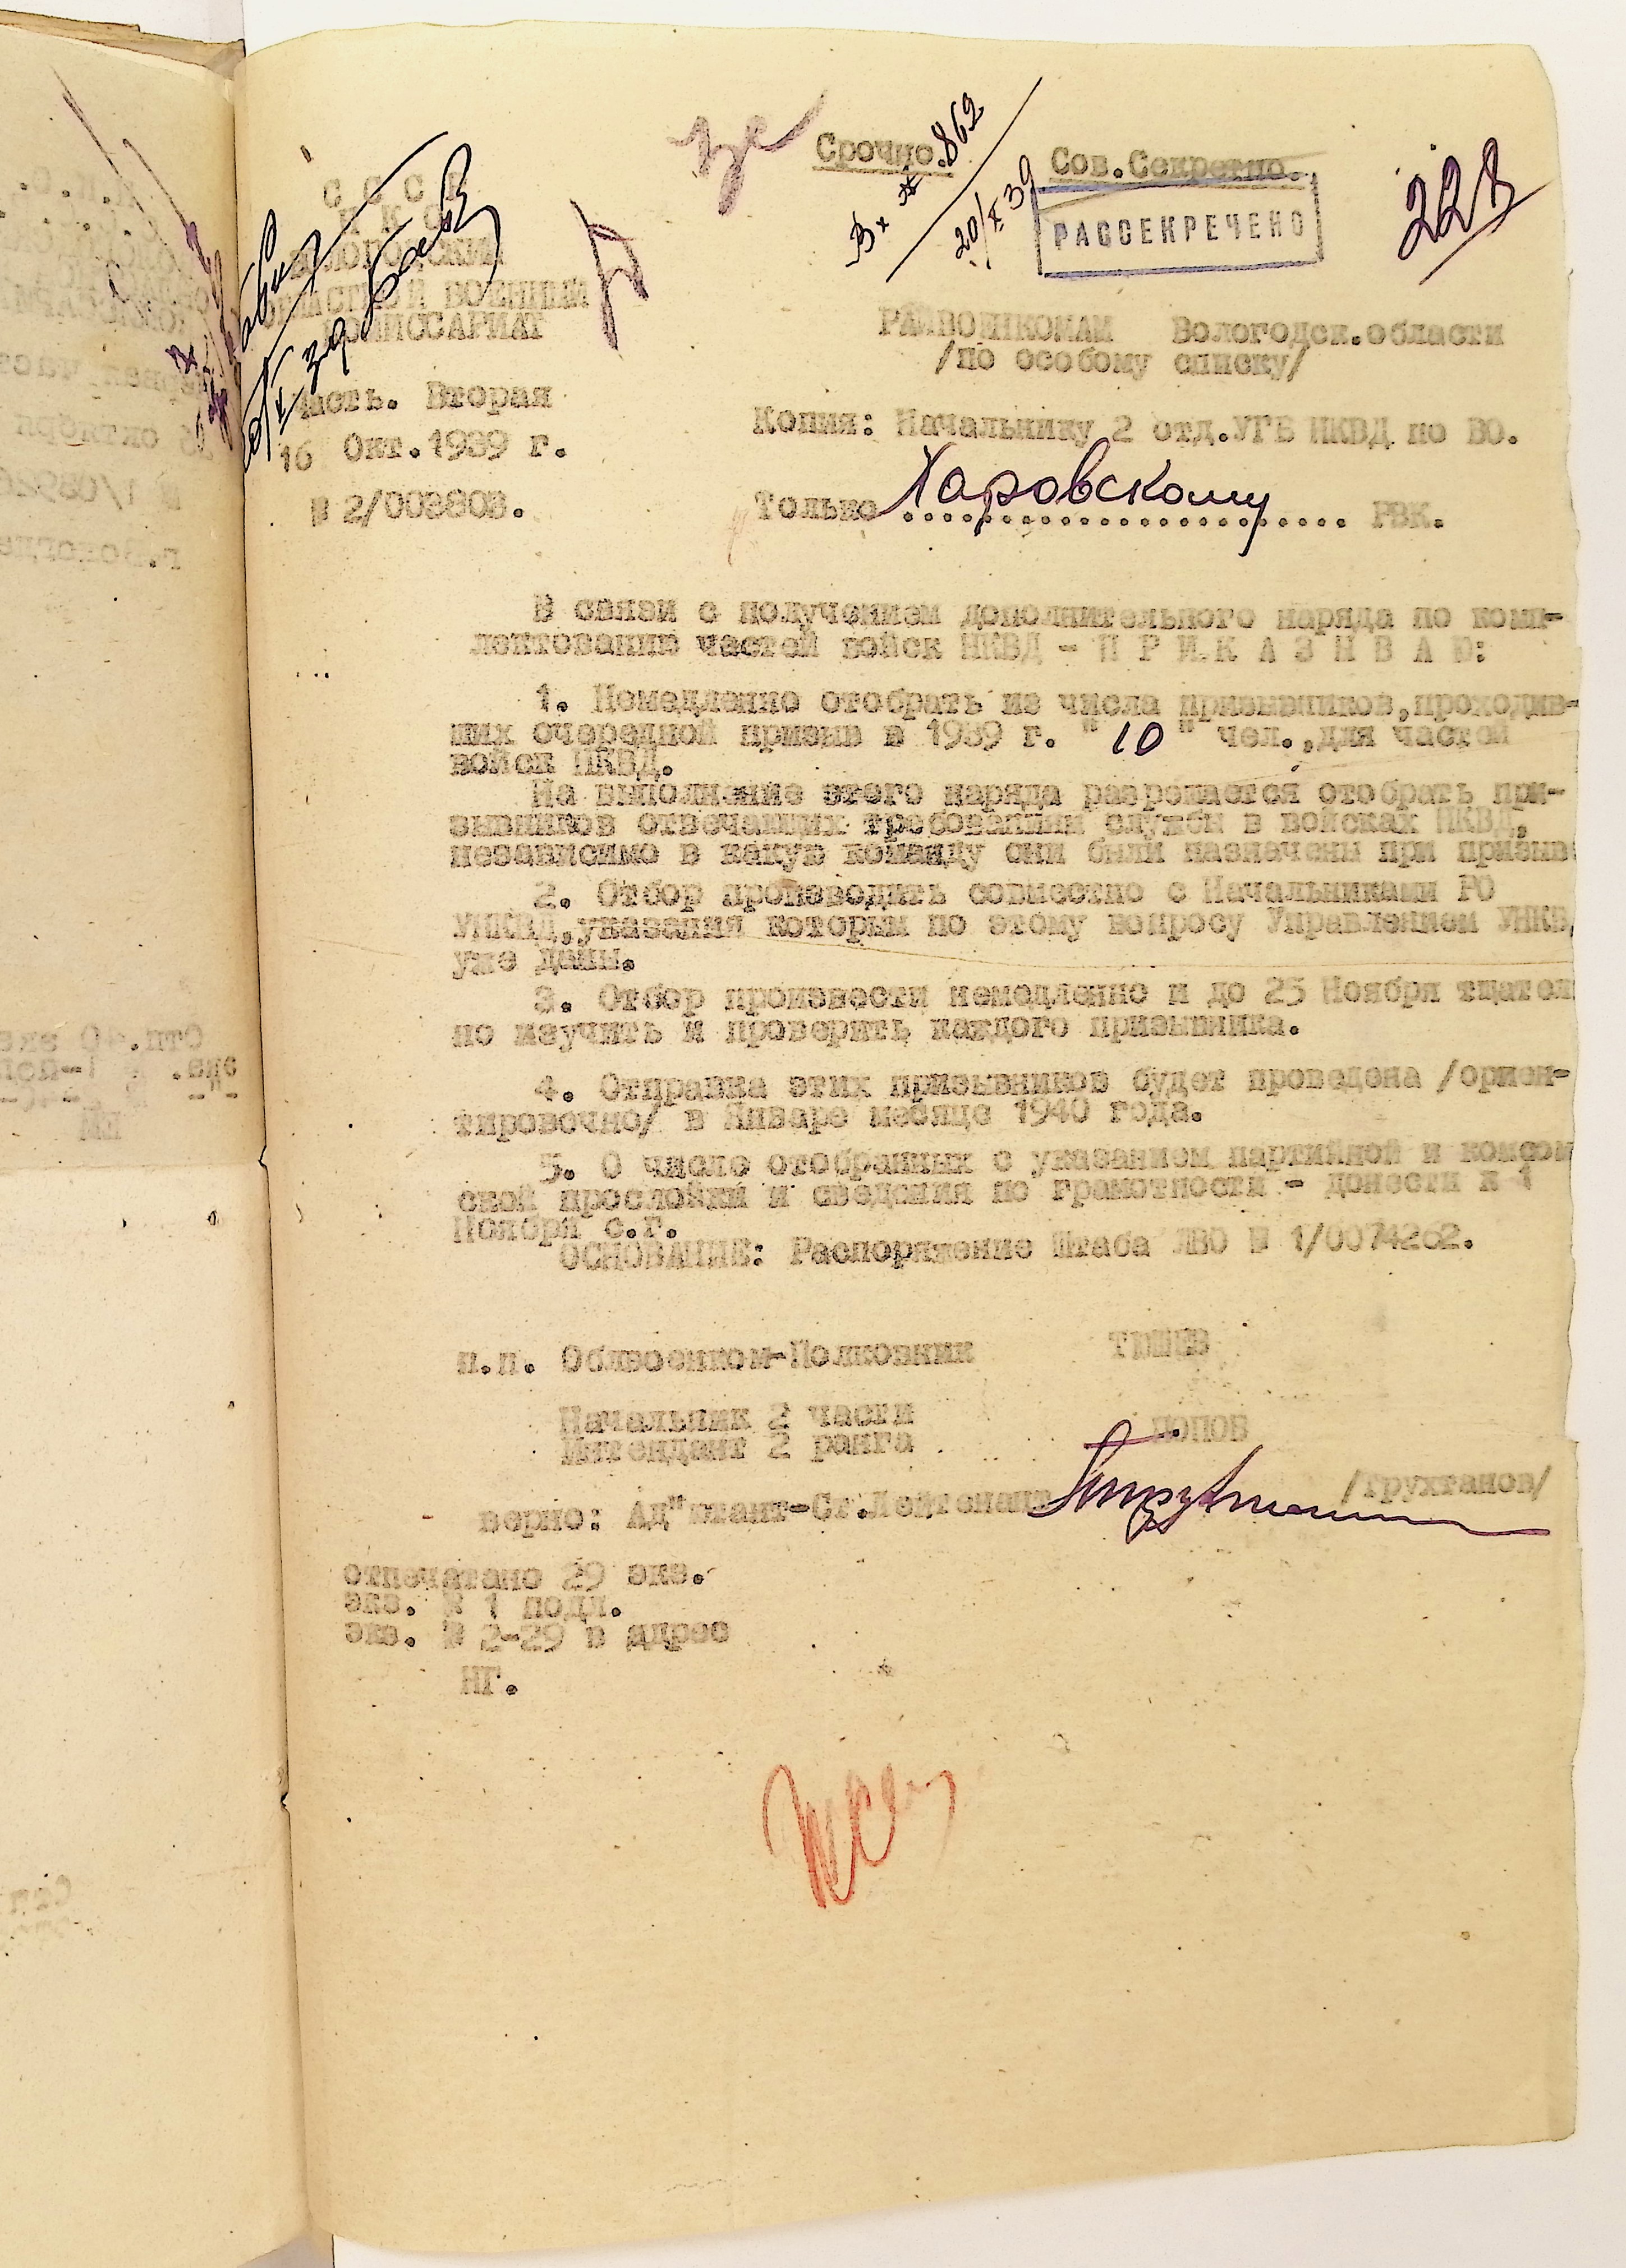 Срочно.
Сов.Секретно.
Вх № 862
20/X 39
РАССЕКРЕЧЕНО
223
С С С Р
Н К О
ВОЛОГОДСКИЙ
ОБЛАСТНОЙ ВОЕННЫЙ
КОМИССАРИАТ
Часть. Вторая
16 Окт. 1939 г.
№ 2/003803.
РАЙВОЕНКОМАМ Вологодск.области
/по особому списку/
Копия: Начальнику 2 отд.УГБ НКВД по ВО.
Только Харовскому РВК.
В связи с получением дополнительного наряда по комп-
лектованию частей войск НКВД - П Р И К А З Ы В А Ю:
1. Немедленно отобрать из числа призывников,проходив-
ших очередной призыв в 1939 г. "10" чел.,для частей
войск НКВД.
На выполнение этого наряда разрешается отобрать при-
зывников отвечающих требованиям службы в войсках НКВД,
независимо в какую команду они были назначены при призыв
2. Отбор производить совместно с Начальниками РО
УНКВД,указания которым по этому вопросу Управлением УНКВ
уже даны.
3. Отбор произвести немедленно и до 25 Ноября тщател
но изучить и проверить каждого призывника.
4. Отправка этих призывников будет проведена /ориен-
тировочно/ в Январе месяце 1940 года.
5. О числе отобранных с указанием партийной и комсом
ской прослойки и сведения по грамотности - донести к 1
Ноября с.г.
ОСНОВАНИЕ: Распоряжение Штаба ЛВО № 1/0074262.
п.п. Облвоенком-Полковник
Начальник 2 части
Интендант 2 ранга ПОПОВ
верно: Ад"ютант-Ст.Лейтенант /трухтанов/
отпечатано 29 экз.
экз. № 1 подл.
экз. № 2-29 в адрес
НГ.